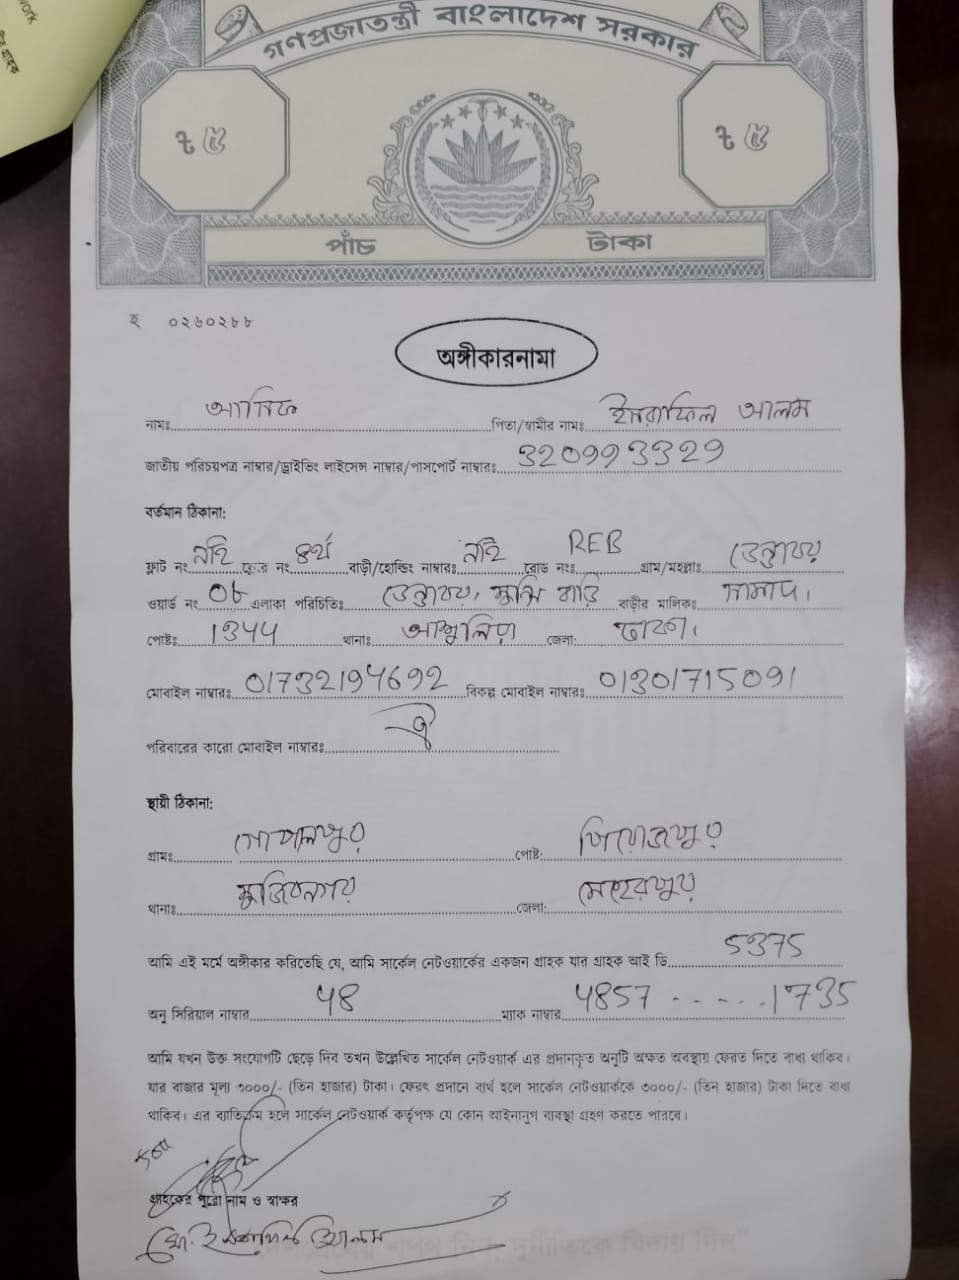 work
গণপ্রজাতন্ত্রী বাংলাদেশ সরকার
৳ ৫ ৳ ৫
পাঁচ টাকা
হ ০২৬০২৮৮
অঙ্গীকারনামা
নামঃ আসিফ পিতা/স্বামীর নামঃ ইসরাফিল আলম
জাতীয় পরিচয়পত্র নাম্বার/ড্রাইভিং লাইসেন্স নাম্বার/পাসপোর্ট নাম্বারঃ
বর্তমান ঠিকানা:
ফ্লাট নং নাই ফ্লোর নং ৪র্থ বাড়ী/হোল্ডিং নাম্বারঃ নাই রোড নংঃ REB গ্রাম/মহল্লাঃ
ওয়ার্ড নং ০৮ এলাকা পরিচিতিঃ বাড়ি বাড়ীর মালিকঃ
পোষ্টঃ 1344 থানাঃ আশুলিয়া জেলা: ঢাকা।
মোবাইল নাম্বারঃ 01732194692 বিকল্প মোবাইল নাম্বারঃ 01301715091
পরিবারের কারো মোবাইল নাম্বারঃ
স্থায়ী ঠিকানা:
গ্রামঃ গোপালপুর পোষ্ট: পিরোজপুর
থানাঃ মুজিবনগর জেলা: মেহেরপুর
আমি এই মর্মে অঙ্গীকার করিতেছি যে, আমি সার্কেল নেটওয়ার্কের একজন গ্রাহক যার গ্রাহক আই ডি 5375
অনু সিরিয়াল নাম্বার 48 ম্যাক নাম্বার 4857 ------1735
আমি যখন উক্ত সংযোগটি ছেড়ে দিব তখন উল্লেখিত সার্কেল নেটওয়ার্ক এর প্রদানকৃত অনুটি অক্ষত অবস্থায় ফেরত দিতে বাধ্য থাকিব।
যার বাজার মূল্য ৩০০০/- (তিন হাজার) টাকা। ফেরৎ প্রদানে ব্যর্থ হলে সার্কেল নেটওয়ার্ককে ৩০০০/- (তিন হাজার) টাকা দিতে বাধ্য
থাকিব। এর ব্যতিক্রম হলে সার্কেল নেটওয়ার্ক কর্তৃপক্ষ যে কোন আইনানুগ ব্যবস্থা গ্রহণ করতে পারবে।
গ্রাহকের পুরো নাম ও স্বাক্ষর
মো: ইসরাফিল আলম